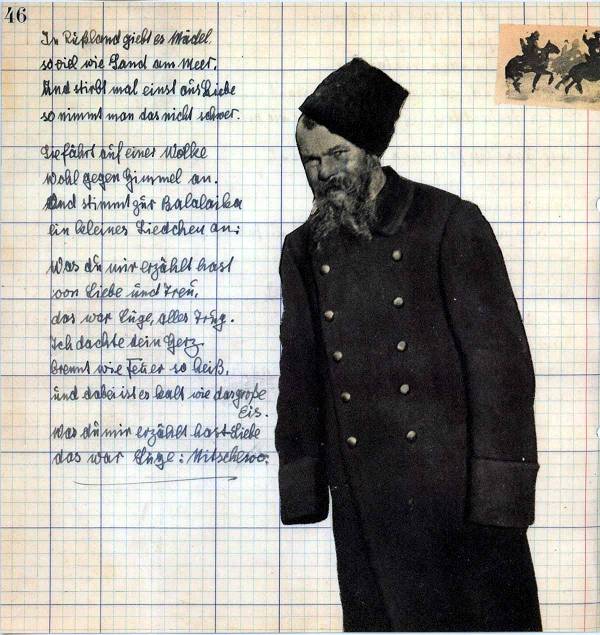 46
In Rußland giebt es Mädel,
so viel wie Sand am Meer.
Und stirbt mal einst aus Liebe
so nimmt man das nicht schwer.
Sie fährt auf einer Wolke
wohl gegen Himmel an.
Und stimmt zur Balalaika
ein kleines Liedchen an:
Was du mir erzählt hast
von Liebe und Treu,
das war Lüge, alles Trug.
Ich dachte dein Herz
brennt wie Feuer so heiß,
und dabei ist es kalt wie das große
Eis.
Was du mir erzählt hast Liebe
das war Lüge: Nitschewo.